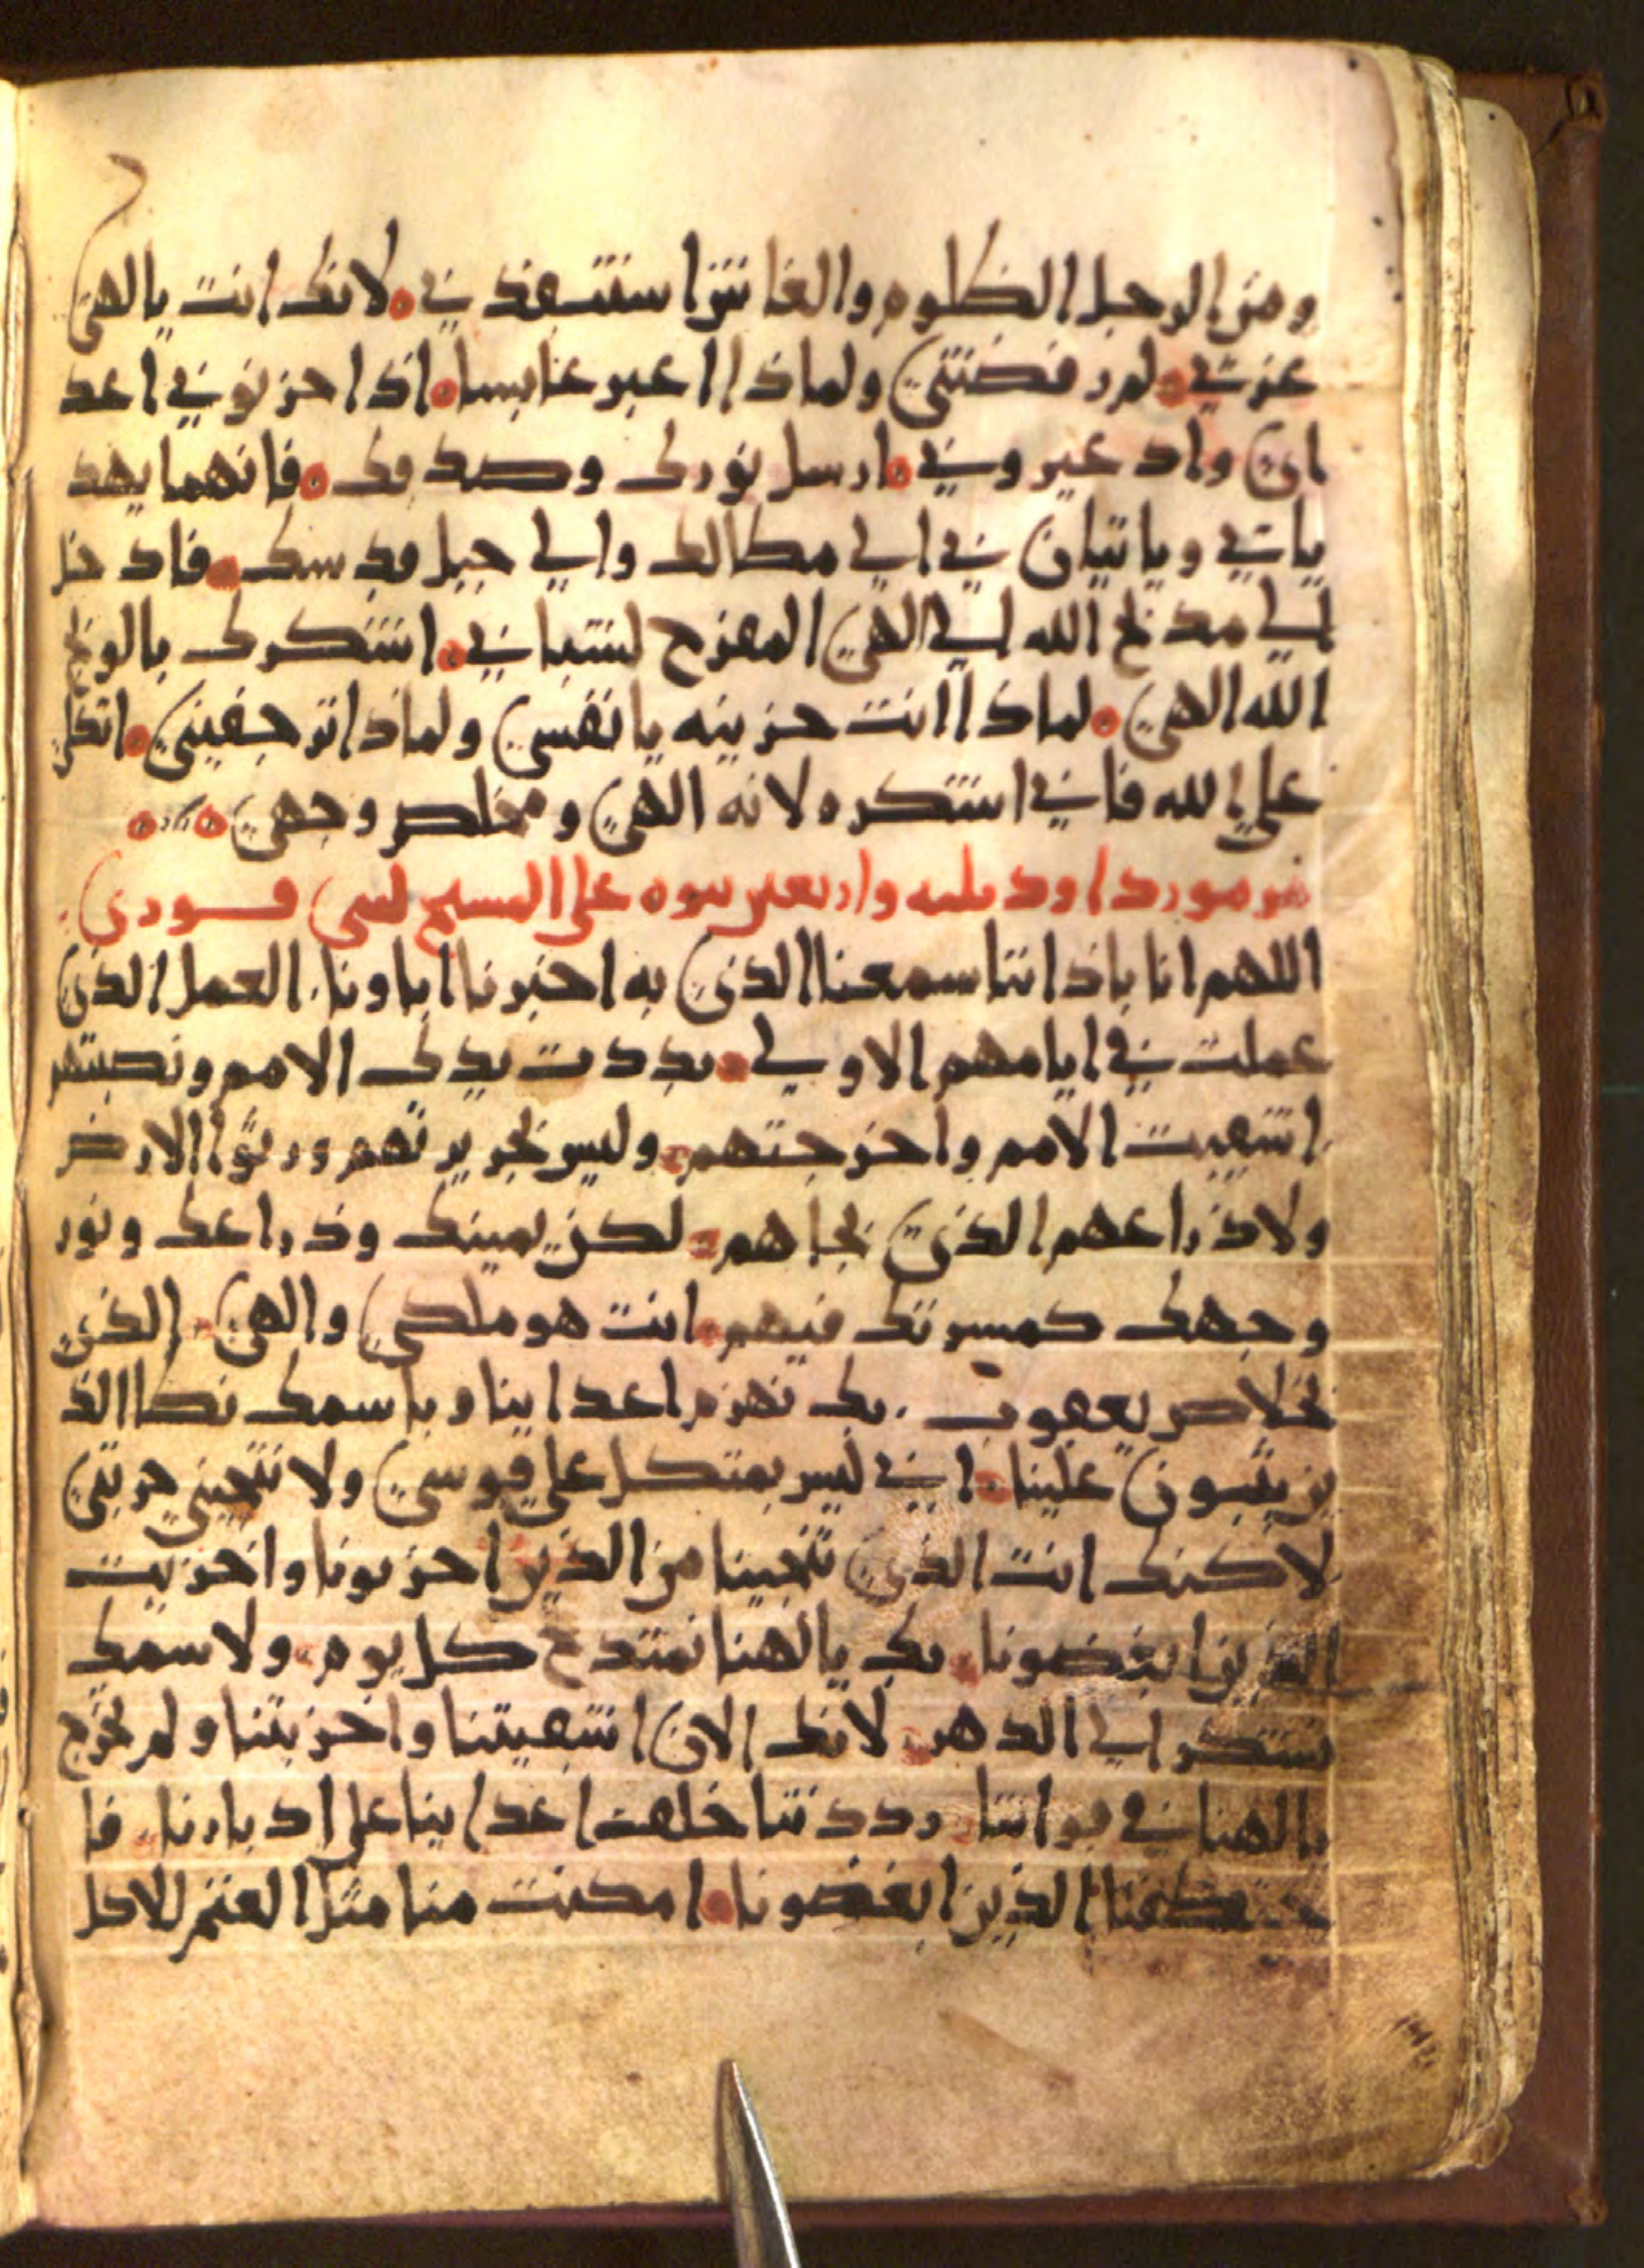 ومن الرجل الظلوم والغاش استنقذني ه لانك انت يا الهي
عزتي ه لم رفضتني ولماذا اعبر عابسا ه اذا حزنوني اعد
اي واد عيروني ه ارسل نورك وصدقك ه فانهما يهد
ياني وياتيان بي الي مظالك والي جبل قدسك ه فادخل
الي مدبح الله الي الهي المفرح لشبابي ه اشكرك بالونج
الله الهي ه لماذا انت حزينه يا نفسي ولماذا ترجفيني ه اتكلي
علي الله فاني اشكره لانه الهي ومخلص وجهي ه ه
مزمور داود ثلثه واربعين نبوه على المسيح لبني قوري
اللهم انا باذاننا سمعنا الذي به اخبرونا اباونا. العمل الذي
عملت في ايامهم الاولي ه بددت يدك الامم ونصبتهم
اشقيت الامم واخرجتهم ه وليس بحربتهم ورثوا الارض
ولا ذراعهم الذي نجاهم ه لكن يمينك وذراعك ونور
وجهك كمسرتك فيهم ه انت هو ملكي والهي ه الذي
لخلاص يعقوب . بك نهزم اعداينا وباسمك نطا الذ
ين يثبون علينا ه اني ليس بمتكل علي قوسي ولا تنجيني حربتي
لاكنك انت الذي تنجينا من الذين احزنونا واخزيت
الذين ابغضونا ه بك يا الهنا نمتدح كل يوم ه ولاسمك
نشكر الي الدهر ه لانك الان اشقيتنا واخزيتنا ولم تخرج
يا الهنا في قواتنا ه رددتنا خلف اعداينا على ادبارنا ه فا
ختطفنا الذين ابغضونا ه امكنت منا مثل الغنم للاكل